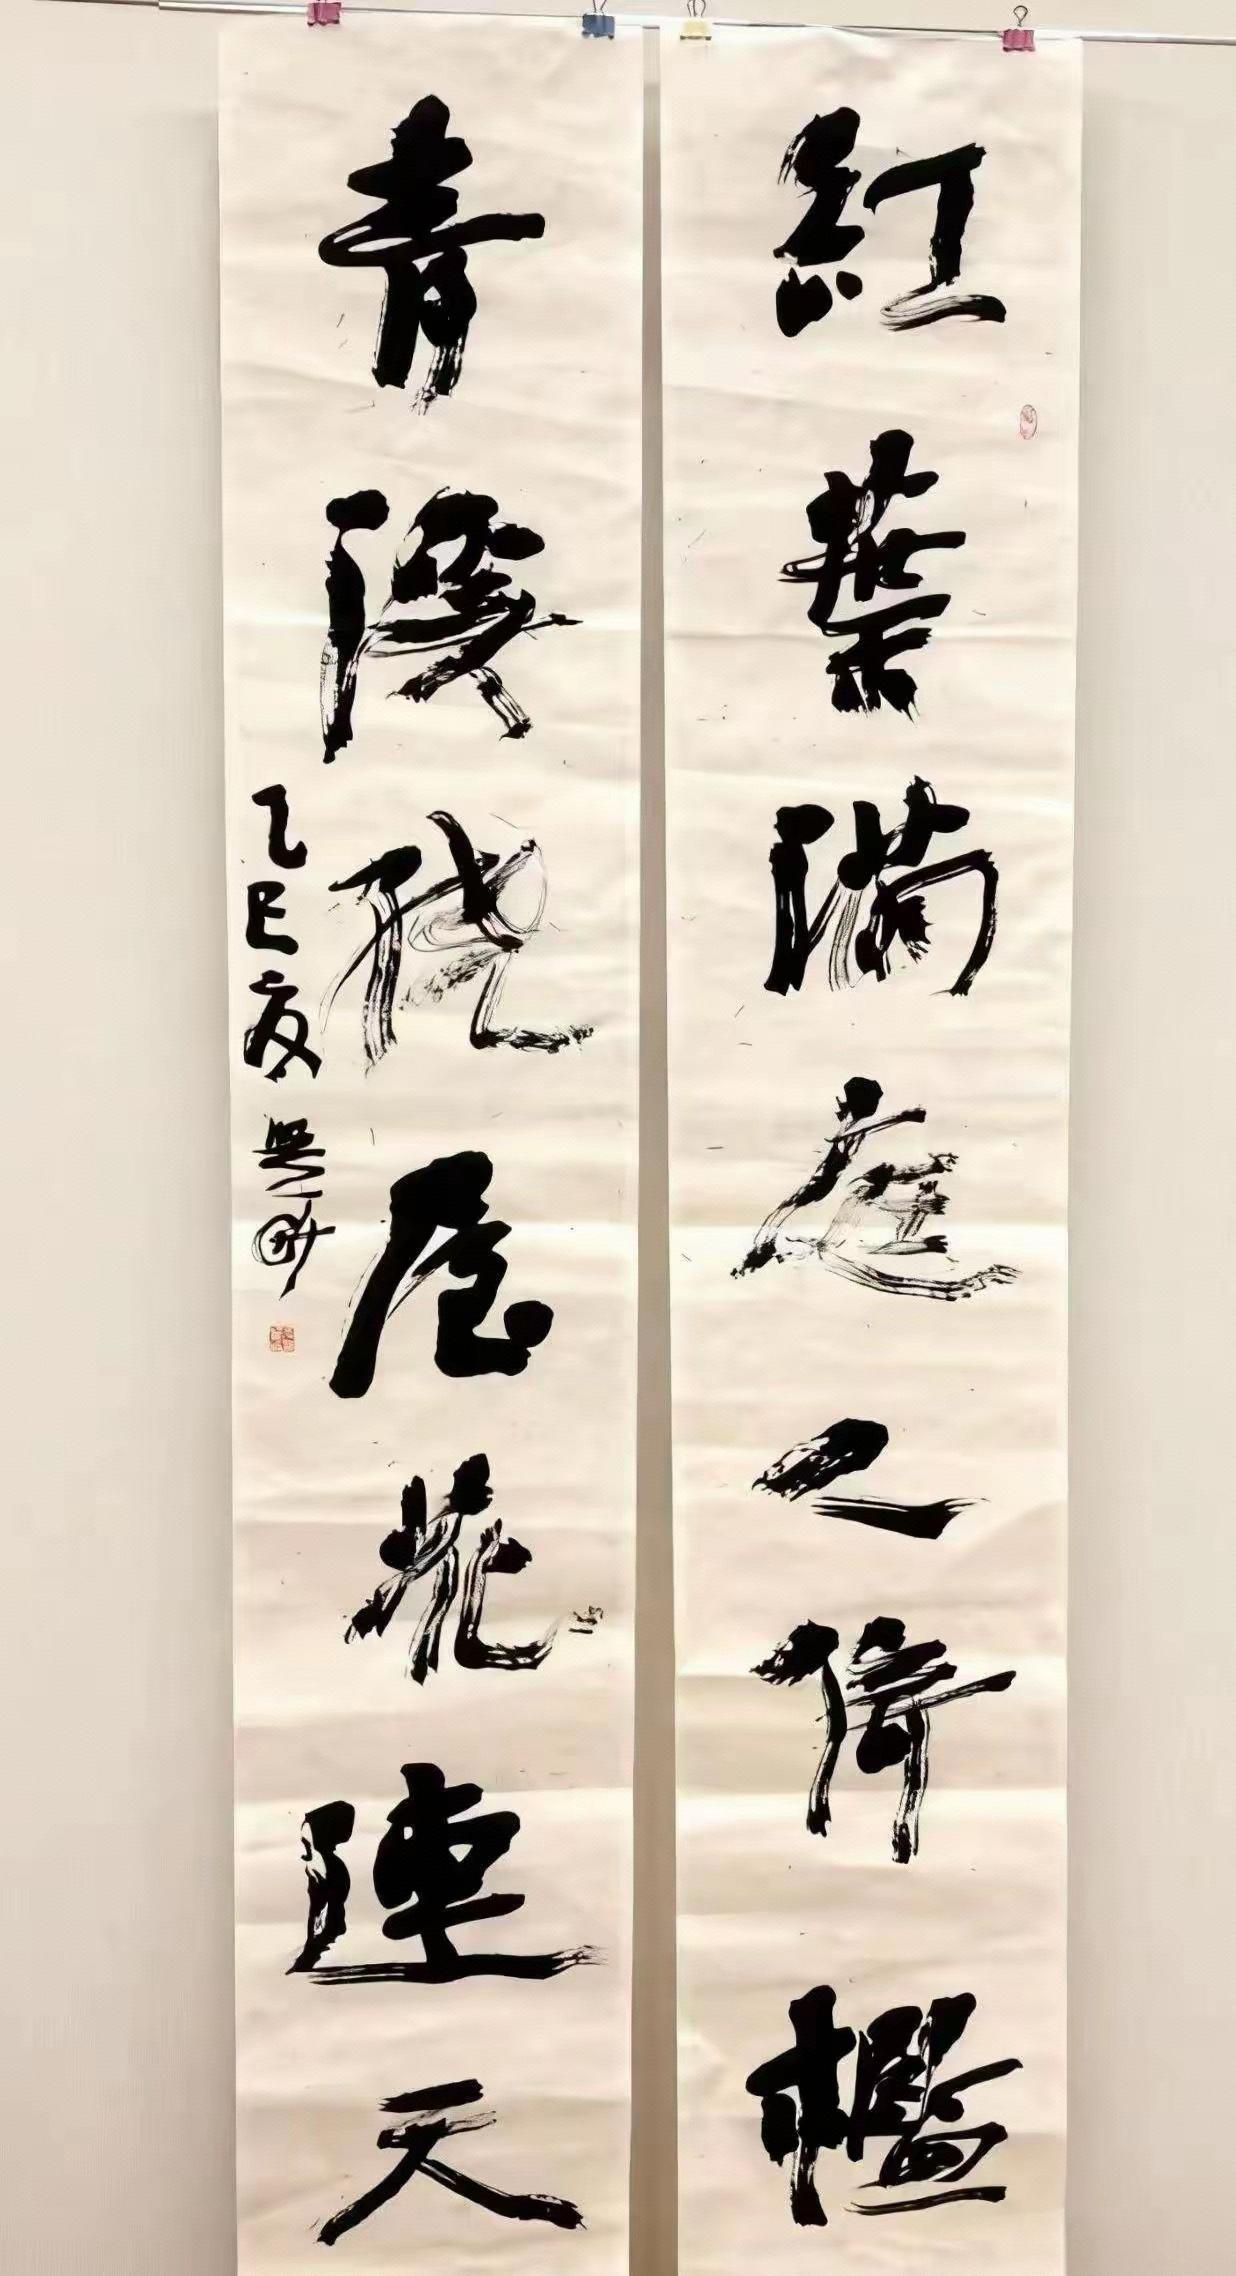 紅葉滿庭人倚檻
青溪屋花連天
乙巳夏